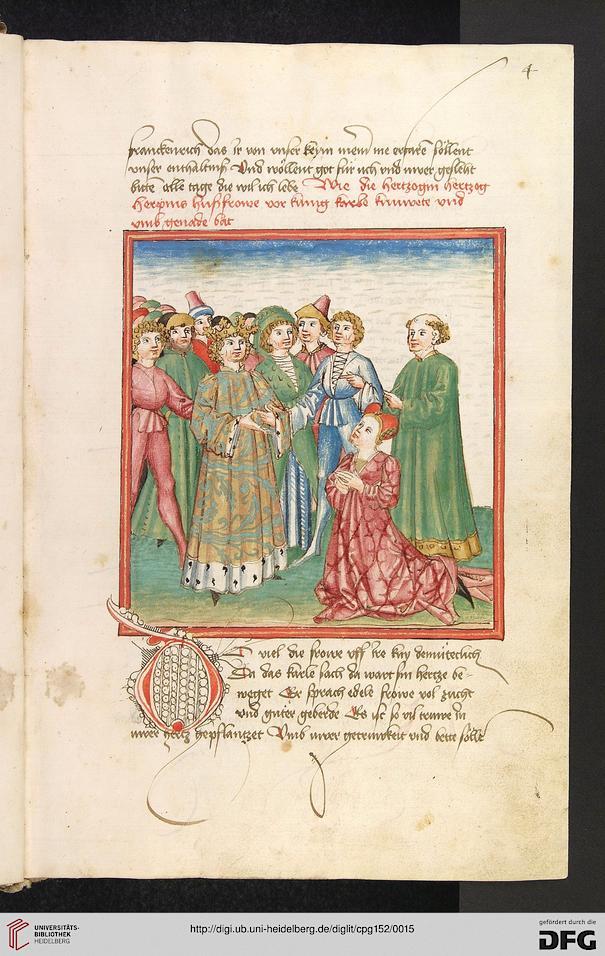 4
franckenrich das ir von unser keyn mem me gespise söllent
unser enthaltniß Und wöllent got für uch und uwer gesleht
bitte alle tage die wil ich lebe Wie die hertzogin hertzog
Herpins hußfrowe vor kunig karle knuwete und
umb genade bat
D viel die frowe uff ire kny demüteclich
Da das karle sach da wart sin hertze be-
weget Er sprach edele frowe vol zucht
und guter geberde Es ist so vil truwe in
uwer hertz gepflantzet Umb uwer getruwkeit und bette sollt
UNIVERSITÄTS-
BIBLIOTHEK
HEIDELBERG
http://digi.ub.uni-heidelberg.de/diglit/cpg152/0015
gefördert durch die
DFG